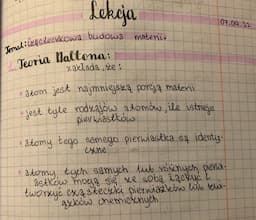 Lekcja
07.09.22
Temat: Cząsteczkowa budowa materii.
Teoria Daltona:
zakłada, że:
• atom jest najmniejszą porcją materii
• jest tyle rodzajów atomów, ile istnieje
pierwiastków
• atomy tego samego pierwiastka są identy-
czne
• atomy tych samych lub różnych pierw-
iastków mogą się ze sobą łączyć i
tworzyć cząsteczki pierwiastków lub zwi-
ązków chemicznych